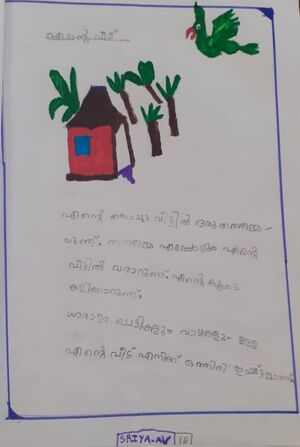 എന്റെ വീട്
എന്റെ കൊച്ചു വീട്ടിൽ ഒരു തത്തമ്മ-
യുണ്ട്. തത്തമ്മ എപ്പോഴും എന്റെ
വീട്ടിൽ വരാറുണ്ട്. എന്റെ കൂടെ
കളിക്കാറുണ്ട്.
ധാരാളം ചെടികളും വാഴകളും ഉള്ള
എന്റെ വീട് എനിക്ക് ഒത്തിരി ഇഷ്ടമാണ്.
SRIYA.AV 18